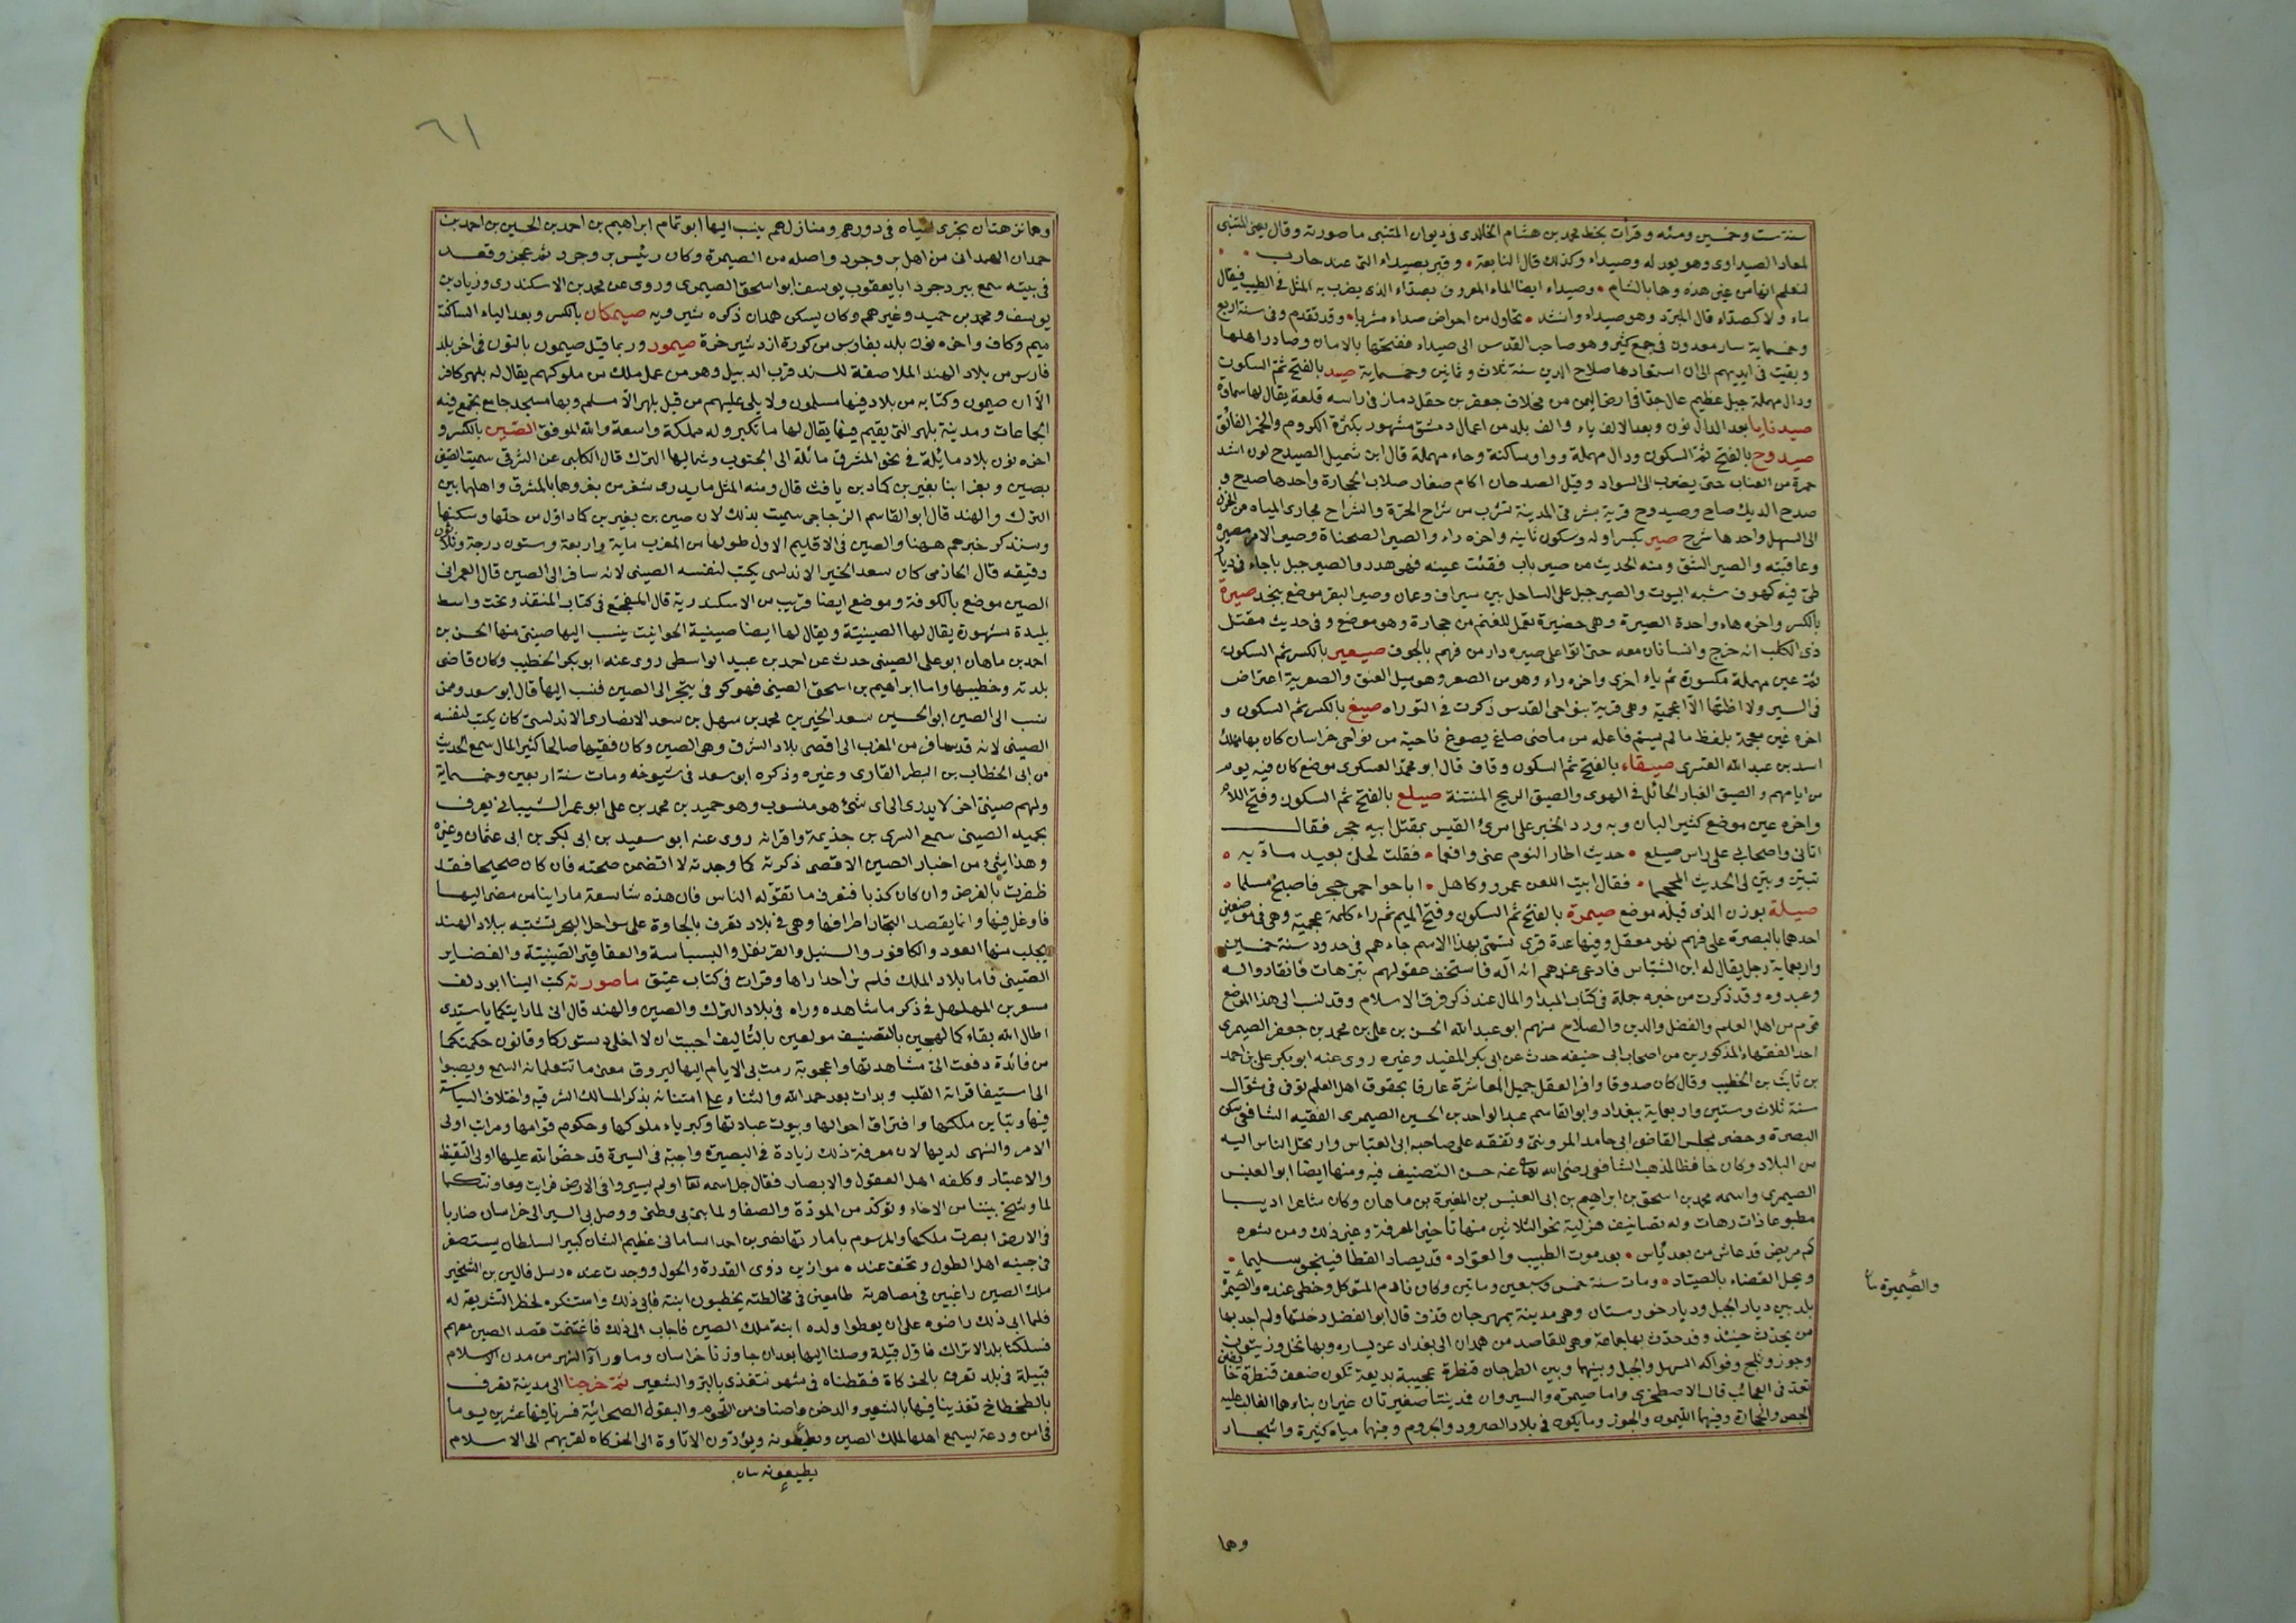 سنة ست وخمسين ومئه وقرأت بخط محمد بن هشام الخالدى فى ديوان المتنبى ما صورته وقال يعنى المتنبى
لمعاد الصيداوى وهو يعد له وصيداء وكذلك قال النابعة • وقبر بصيداء التى عند حارب •
لتعلم انها من غير هذه وحابا لشام • وصيداء ايضا الماء المعروف بصداء الذى يضرب به المثل فى الطيب فيقال
ماء ولا كصداء قال المبرد وهو صيداء وانشد • تحاول من احواض صداء مشربا • وقد تقدم وفى سنة اربع
وخمساية سار معدون فى جمع كثير وهو صاحب القدس الى صيداء ففتحها بالامان وصادر اهلها
وبقيت فى ايديهم الى ان استعادها صلاح الدين سنة ثلاث وثمانين وخمساية صيد بالفتح ثم السكون
ودال مهملة جبل عظيم عال جدا فى ارض اليمن من مخلاف جعفر بن حقل دمار فى راسه قلعة يقال لها سمارة
صيدنايا بعد الدال نون وبعد الالف ياء والف بلد من اعمال دمشق مشهور بكثرة الكروم والخمر الفائق
صيدوح بالفتح ثم السكون ودال مهملة وواو ساكنة وحاء مهملة قال ابن شميل الصيدح لون اشد
حمرة من العناب حتى يضرب الى السواد وقيل الصدحان اكام صغار صلاب الحجارة واحدها صدح و
صدح الديك صاح وصيدوح قرية بشرقى المدينة تشرب من شراج الحرة والشراج مجارى المياه من الحزن
الى السهل واحدها شرج صير بكسر اوله وسكون ثانيه واخره راء والصير الصحناة وصير الامر مصيره
وعاقبته والصير الشق ومنه الحديث من صير باب ففقئت عينه فهى هدر والصير جبل باجاء فى ديار
طى فيه كهوف شبه البيوت والصير جبل على الساحل بين سيراف وعمان وصير البقر موضع بنجد صيرة
بالكسر واخره هاء واحدة الصيرة وهى حضيرة تعمل للغنم من حجارة وهو موضع وفى حديث مقتل
ذى الكلب انه خرج وانسانان معه حتى اتوا على صيره دار من فهم بالجوف صيعير بالكسر ثم السكون
ثم عين مهملة مكسورة ثم ياء اخرى واخره راء وهو من الصعر وهو ميل العنق والصعرية اعتراض
فى السير ولا اظنها الا اعجمية وهى قرية بنواحى القدس ذكرت فى التوراه صيغ بالكسر ثم السكون و
اخره غين معجمة بلفظ ما لم يسم فاعله من ماضى صاغ يصوغ ناحية من نواحى خراسان كان بها مهلك
اسد بن عبد الله القسرى صيقاء بالفتح ثم السكون وقاف قال ابو محمد العسكرى موضع كان فيه يوم
من ايامهم والصيق الغبار الحائل فى الهوى والصيق الريح المنتنة صيلع بالفتح ثم السكون وفتح اللام
واخره عين موضع كثير البان وبه ورد الخبر على امرئ القيس بمقتل ابيه حجر فقال
اتانى واصحابى على راس صيلع • حديث اطار النوم عنى وافعما • فقلت لجلى بعيد مآبه •
تبين وبين لى الحديث المجمجما • فقال ابيت اللعن عمرو وكاهل • اباحوا حمى حجر فاصبح مسلما •
صيلة بوزن الذى قبله موضع صيمرة بالفتح ثم السكون وفتح الميم ثم راء كلمة عجمية وهى فى موضعين
احدهما بالبصرة على فهم نهر معقل وفيها عدة قرى تسمى بهذا الاسم جاءهم فى حدود سنة خمسين
واربعماية رجل يقال له ابن الشباس فادعى عندهم انه اله فاستخف عقولهم بترهات فانقادوا له
وعبدوه وقد ذكرت من خبره جملة فى كتاب المبدا والمال عند ذكر فرق الاسلام وقد نسب الى هذا الموضع
قوم من اهل العلم والفضل والدين والصلاح منهم ابو عبد الله الحسن بن على بن محمد بن جعفر الصيمرى
احد الفقهاء المذكورين من اصحاب ابى حنيفه حدث عن ابى بكر المفيد وغيره روى عنه ابو بكر على بن احمد
بن ثابت بن الخطيب وقال كان صدوقا وافر العقل جميل المعاشرة عارفا بحقوق اهل العلم توفى فى شوال
سنة ثلاث وستين واربعماية ببغداد وابو القاسم عبد الواحد بن الحسين الصيمرى الفقيه الشافعى سكن
البصرة وحضر مجلس القاضى ابى حامد المروتى وتفقه على صاحبه ابى العباس وارتحل الناس اليه
من البلاد وكان حافظا لمذهب الشافعى رضى الله تعالى عنه حسن التصنيف فيه ومنها ايضا ابو العنبس
الصيمرى واسمه محمد بن اسحق بن ابراهيم بن ابى العنبس بن المغيرة بن ماهان وكان شاعرا اديبا
مطبوعا ذا ترهات وله تصانيف هزلية نحو الثلاثين منها تاخير المعرفة وغير ذلك ومن شعره
كم مريض قد عاش من بعد يأس • بعد موت الطبيب والعواد • قد يصاد القطا فينجو سليما •
ويحل القضاء بالصياد • ومات سنة خمس وسبعين وماتين وكان نادم المتوكل وحظى عنده والصيمرة
بلد بين ديار الجبل وديار خورستان وهى مدينة بمهرجان قذف قال ابو الفضل دخلتها ولم اجد بها
من يحدث حينئذ وقد حدث بها جماعة وهى للقاصد من همدان الى بغداد عن يساره وبها نخل وزيتون
وجوز وثلج وفواكه السهل والجبل وبينهما وبين الطرحان قنطرة عجيبة بديعة تكون ضعف قنطرة خانقين
تعد فى العجائب قال الاصطخرى واما صيمرة والسيروان فمدينتا صغيرتان غير ان بناءهما الغالب عليه
الجص والحجارة وفيهما الليمون والجوز وما يكون فى بلاد الصرود والجروم وفيهما مياه كثيرة واشجار
والصيمرة
وهما
٦١
وهما نزهتان يجرى المياه فى دورهم ومنازلهم ينسب اليها ابو تمام ابراهيم بن احمد بن الحسين بن احمد بن
حمدان الهمدانى من اهل بروجود واصله من الصيمرة وكان رئيس بروجرد ثم عجز وقعد
فى بيته سمع ببردجود ابا يعقوب يوسف ابو اسحق الصيمرى وروى عن محمد بن الاسكندرى وزياد بن
يوسف ومحمد بن حميد وغيرهم وكان يسكن همدان ذكره شيرويه صيمكان بالكسر وبعد الياء الساكنة
ميم وكاف واخره نون بلد بفارس من كورة اردشير خرة صيمور وربما قيل صيمون بالنون فى اخر بلد
فارس من بلاد الهند الملاصقة للسند قرب الدبيل وهو من عمل ملك من ملوكهم يقال له بلهر كافر
الا ان صيمون وكتابه من بلاد فيها مسلمون ولا يلى عليهم من قبل بلهر الا مسلم وبها مسجد جامع يجمع فيه
الجماعات ومدينة بلهر التى يقيم فيها يقال لها ماتكير وله مملكة واسعة والله الموفق الصين بالكسر و
اخره نون بلاد مائلة فى نحو المشرق مائلة الى الجنوب وشماليها الترك قال الكلبى عن الشرقى سميت الصين
بصين وبغر ابنا بغير بن كماد بن يافث قال ومنه المثل ما يدرى شغر من بغر وهما بالمشرق واهلها بين
الترك والهند قال ابو القاسم الزجاجى سميت بذلك لان صين بن بغير بن كماد اول من حلها وسكنها
وسنذكر خبرهم ههنا والصين فى الاقليم الاول طولها من المغرب ماية واربعة وستون درجة وثلاثون
دقيقه قال الحازمى كان سعد الخير الاندلسى يكتب لنفسه الصينى لانه سافر الى الصين قال العمرانى
الصين موضع بالكوفة وموضع ايضا قريب من الاسكندرية قال المفجع فى كتاب المنقذ وتحت واسط
بليدة مشهورة يقال لها الصينية ويقال لها ايضا صينية الحوانيت ينسب اليها صينى منها الحسن بن
احمد بن ماهان ابو على الصينى حدث عن احمد بن عبيد الواسطى روى عنه ابو بكر الخطيب وكان قاضى
بلدته وخطيبها واما ابراهيم بن اسحق الصينى فهو كوفى يتجر الى الصين فنسب اليها قال ابو سعد وممن
نسب الى الصين ابو الحسين سعد الخير بن محمد بن سهل بن سعد الانصارى الاندلسى كان يكتب لنفسه
الصينى لانه قد سافر من المغرب الى اقصى بلاد الشرق وهى الصين وكان فقيها صالحا كثير المال سمع الحديث
من ابى الخطاب بن البطر القارى وغيره وذكره ابو سعد فى شيوخه ومات سنة اربعين وخمساية
ولهم صينى اخر لا يدرى الى اى شئ هو منسوب وهو حميد بن محمد بن على ابو عمر الشيبانى يعرف
بحميد الصينى سمع السرى بن جذيمة واقرانه روى عنه ابو سعيد بن ابى بكر بن ابى عثمان وغيره
وهذا شىء من اخبار الصين الاقصى ذكرته كما وجدته لا اتضمن صحته فان كان صحيحا فقد
ظفرت بالغرض وان كان كذبا فتعرف ما تقوله الناس فان هذه شاسعة ما راينا من مضى اليها
فاوغل فيها وانما يقصد التجار اطرافها وهى فى بلاد تعرف بالجاوة على سواحل البحر تشتبه ببلاد الهند
يجلب منها العود والكافور والسنبل والقرنفل والبسباسة والعقاقير الصينية والغضاير
الصينى فاما بلاد الملك فلم نر احدا راها وقرات فى كتاب عتيق ما صورته كتب الينا ابو دلف
مسعر بن المهلهل فى ذكر ما شاهده وراه فى بلاد الترك والصين والهند قال انى لما رايتكما يا سيدى
اطال الله بقاء كما لهجين بالتصنيف مولعين بالتأليف احببت ان لا اخلى دستوركما وقانون حكمتكما
من فائدة دفعت الى مشاهدتها واعجوبة رمت بى الايام اليها ليروق معنى ما تتعلمانه السمع ويصبوا
الى استيفا قراءته القلب وبدات بعد حمد الله والثناء على امتنانه بذكر المسالك الشرقيه واختلاف السياسة
فيها وتباين مملكتها وافتراق احوالها وبيوت عبادتها وكبرياء ملوكها وحكوم قوامها ومراتب اولى
الامر والنهى لديها لان معرفة ذلك زيادة فى البصيرة واجبة فى السيرة قد حض الله عليها اولى التيقظ
والاعتبار وكلفه اهل العقول والابصار فقال جل اسمه تعالى اولم يسيروا فى الارض فرايت معاونتكما
لما وشج بيننا من الاخاء وتوكد من المودة والصفا ولما بنى بى وطنى ووصل بى السير الى خراسان ضاربا
فى الارض ابصرت ملكها والمرسوم بامارتها نصر بن احمد السامانى عظيم الشان كبير السلطان يستصغر
فى جنبه اهل الطول وتخف عنده موازين ذوى القدرة والحول ووجدت عنده رسل قالين بن الشخير
ملك الصين راغبين فى مصاهرته طامعين فى مخالطته يخطبون ابنته فابى ذلك واستنكره لحظر الشريعة له
فلما ابى ذلك راضوه على ان يعطوا ولده ابنة ملك الصين فاجاب الى ذلك فاغتنمت قصد الصين معهم
فسلكنا بلد الاتراك فاول قبيلة وصلنا اليها بعد ان جاوزنا خراسان وما وراء النهر من مدن الاسلام
قبيلة فى بلد تعرف بالخركاة فقطناه فى شهر نتغذى بالبر والشعير ثم خرجنا الى مدينة تعرف
بالطخطاخ تغذينا فيها بالشعير والدخن واصناف من اللحوم والبقول الصحرائية فسرنا فيها عشرين يوما
فى امن ودعة ليسمع اهلها لملك الصين ويطيعونه ويؤدون الاتاوة الى الخركاه لقربهم الى الاسلام
يطيعونه